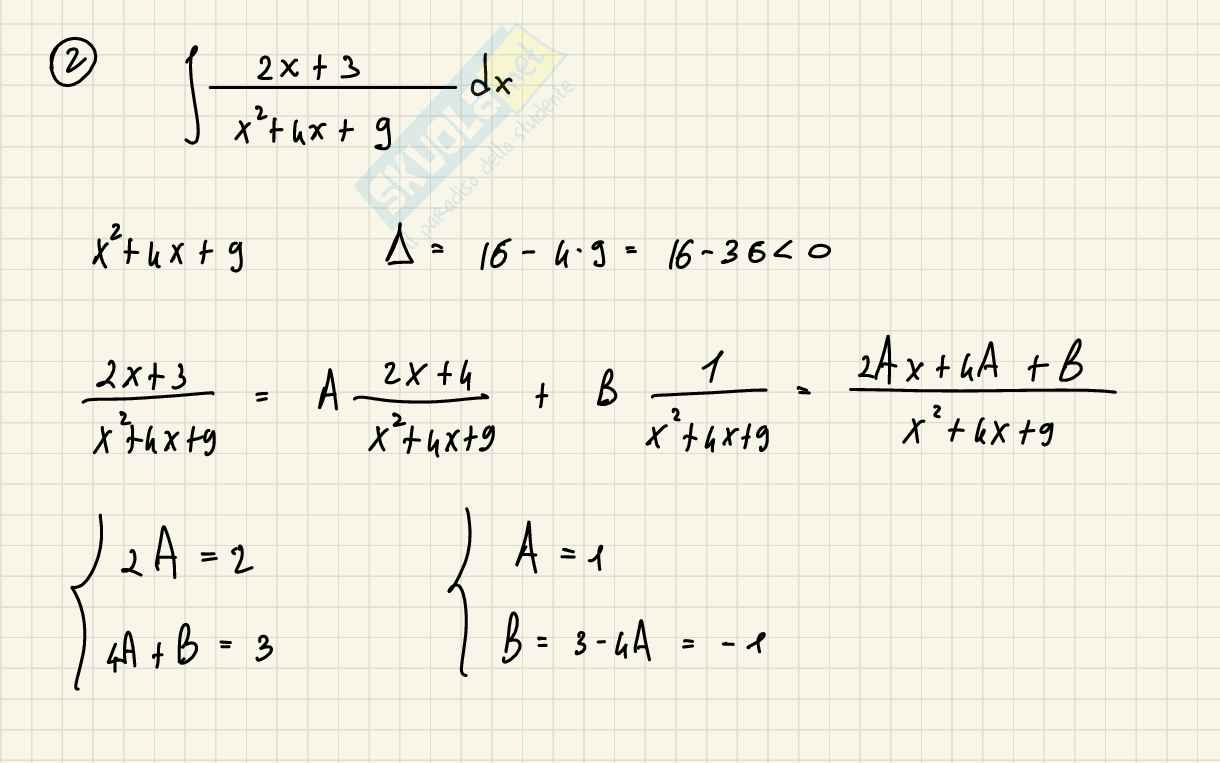 ② ∫ (2x + 3)/(x² + 4x + 9) dx
SKUOLA.net
il paradiso dello studente
x² + 4x + 9    Δ = 16 - 4·9 = 16 - 36 < 0
(2x + 3)/(x² + 4x + 9) = A (2x + 4)/(x² + 4x + 9) + B 1/(x² + 4x + 9) = (2Ax + 4A + B)/(x² + 4x + 9)
{ 2A = 2    { A = 1
4A + B = 3    B = 3 - 4A = -1